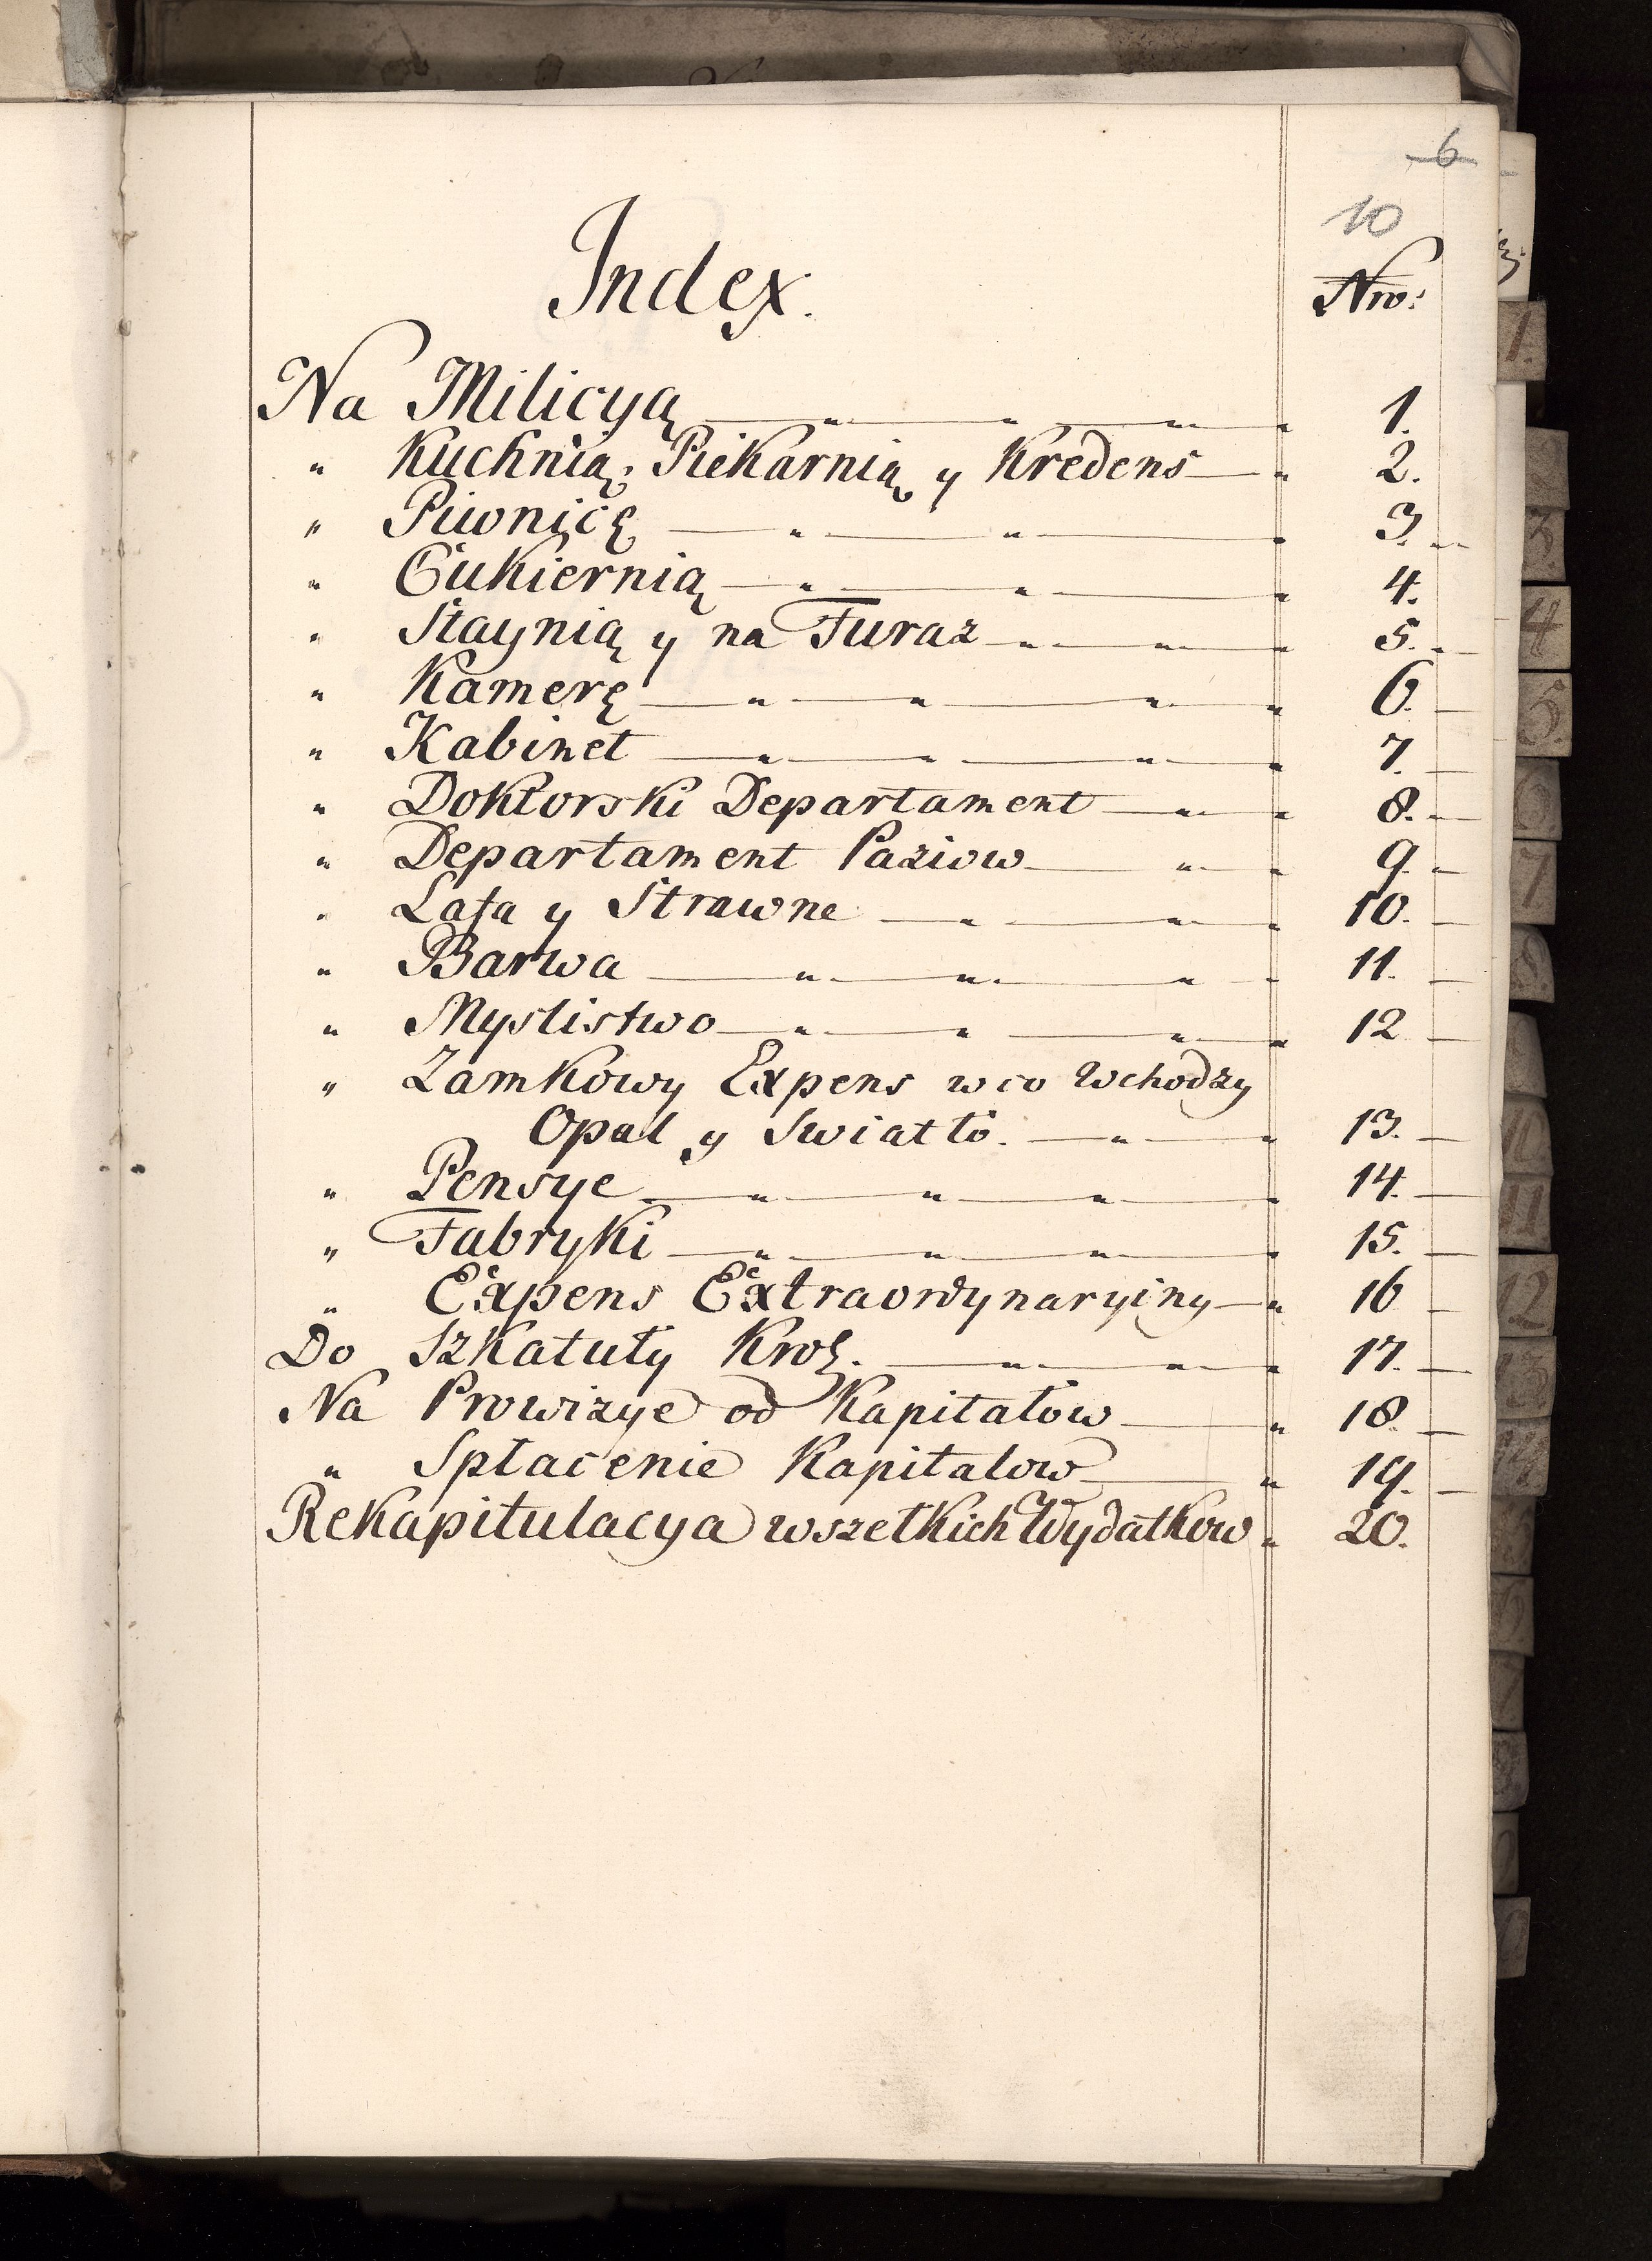 6
10
Index. Nro:
Na Milicyą 1.
" Kuchnią, Piekarnią y Kredens 2.
" Piwnicę 3.
" Cukiernią 4.
" Staynią y na Furaz 5.
" Kamerę 6.
" Kabinet 7.
" Doktorski Departament 8.
" Departament Paziow 9.
" Lafa y Strawne 10.
" Barwa 11.
" Myslistwo 12
" Zamkowy Expens w co Wchodzy
Opał y Swiatło. 13.
" Pensye 14.
" Fabryki 15.
" Expens Extraordynaryiny 16
Do Szkatuły Krol. 17.
Na Prowizye od Kapitałow 18.
" Spłacenie Kapitalow 19.
Rekapitulacya wszelkich Wydatkow 20.
1.
3
4
5.
6
7
8
10
11
12
13
14